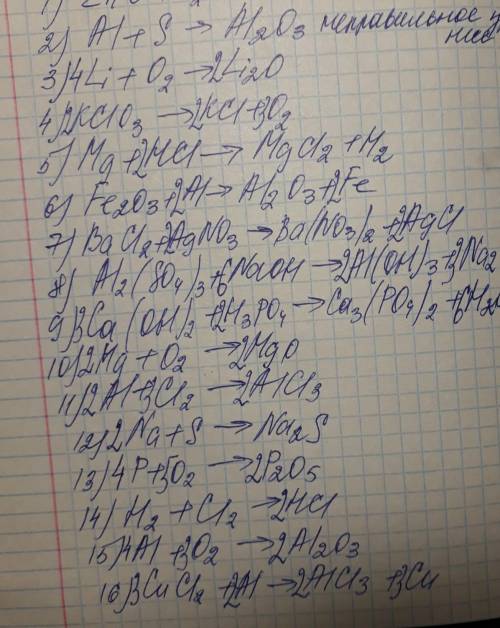 2) Al + S → Al2O3 неправильное
3) 4Li + O2 → 2Li2O
4) 2KClO3 → 2KCl + 3O2
5) Mg + 2HCl → MgCl2 + H2
6) Fe2O3 + 2Al → Al2O3 + 2Fe
7) BaCl2 + 2AgNO3 → Ba(NO3)2 + 2AgCl
8) Al2(SO4)3 + 6NaOH → 2Al(OH)3 + 3Na2
9) 3Ca(OH)2 + 2H3PO4 → Ca3(PO4)2 + 6H2O
10) 2Mg + O2 → 2MgO
11) 2Al + 3Cl2 → 2AlCl3
12) 2Na + S → Na2S
13) 4P + 5O2 → 2P2O5
14) H2 + Cl2 → 2HCl
15) 4Al + 3O2 → 2Al2O3
16) 3CuCl2 + 2Al → 2AlCl3 + 3Cu